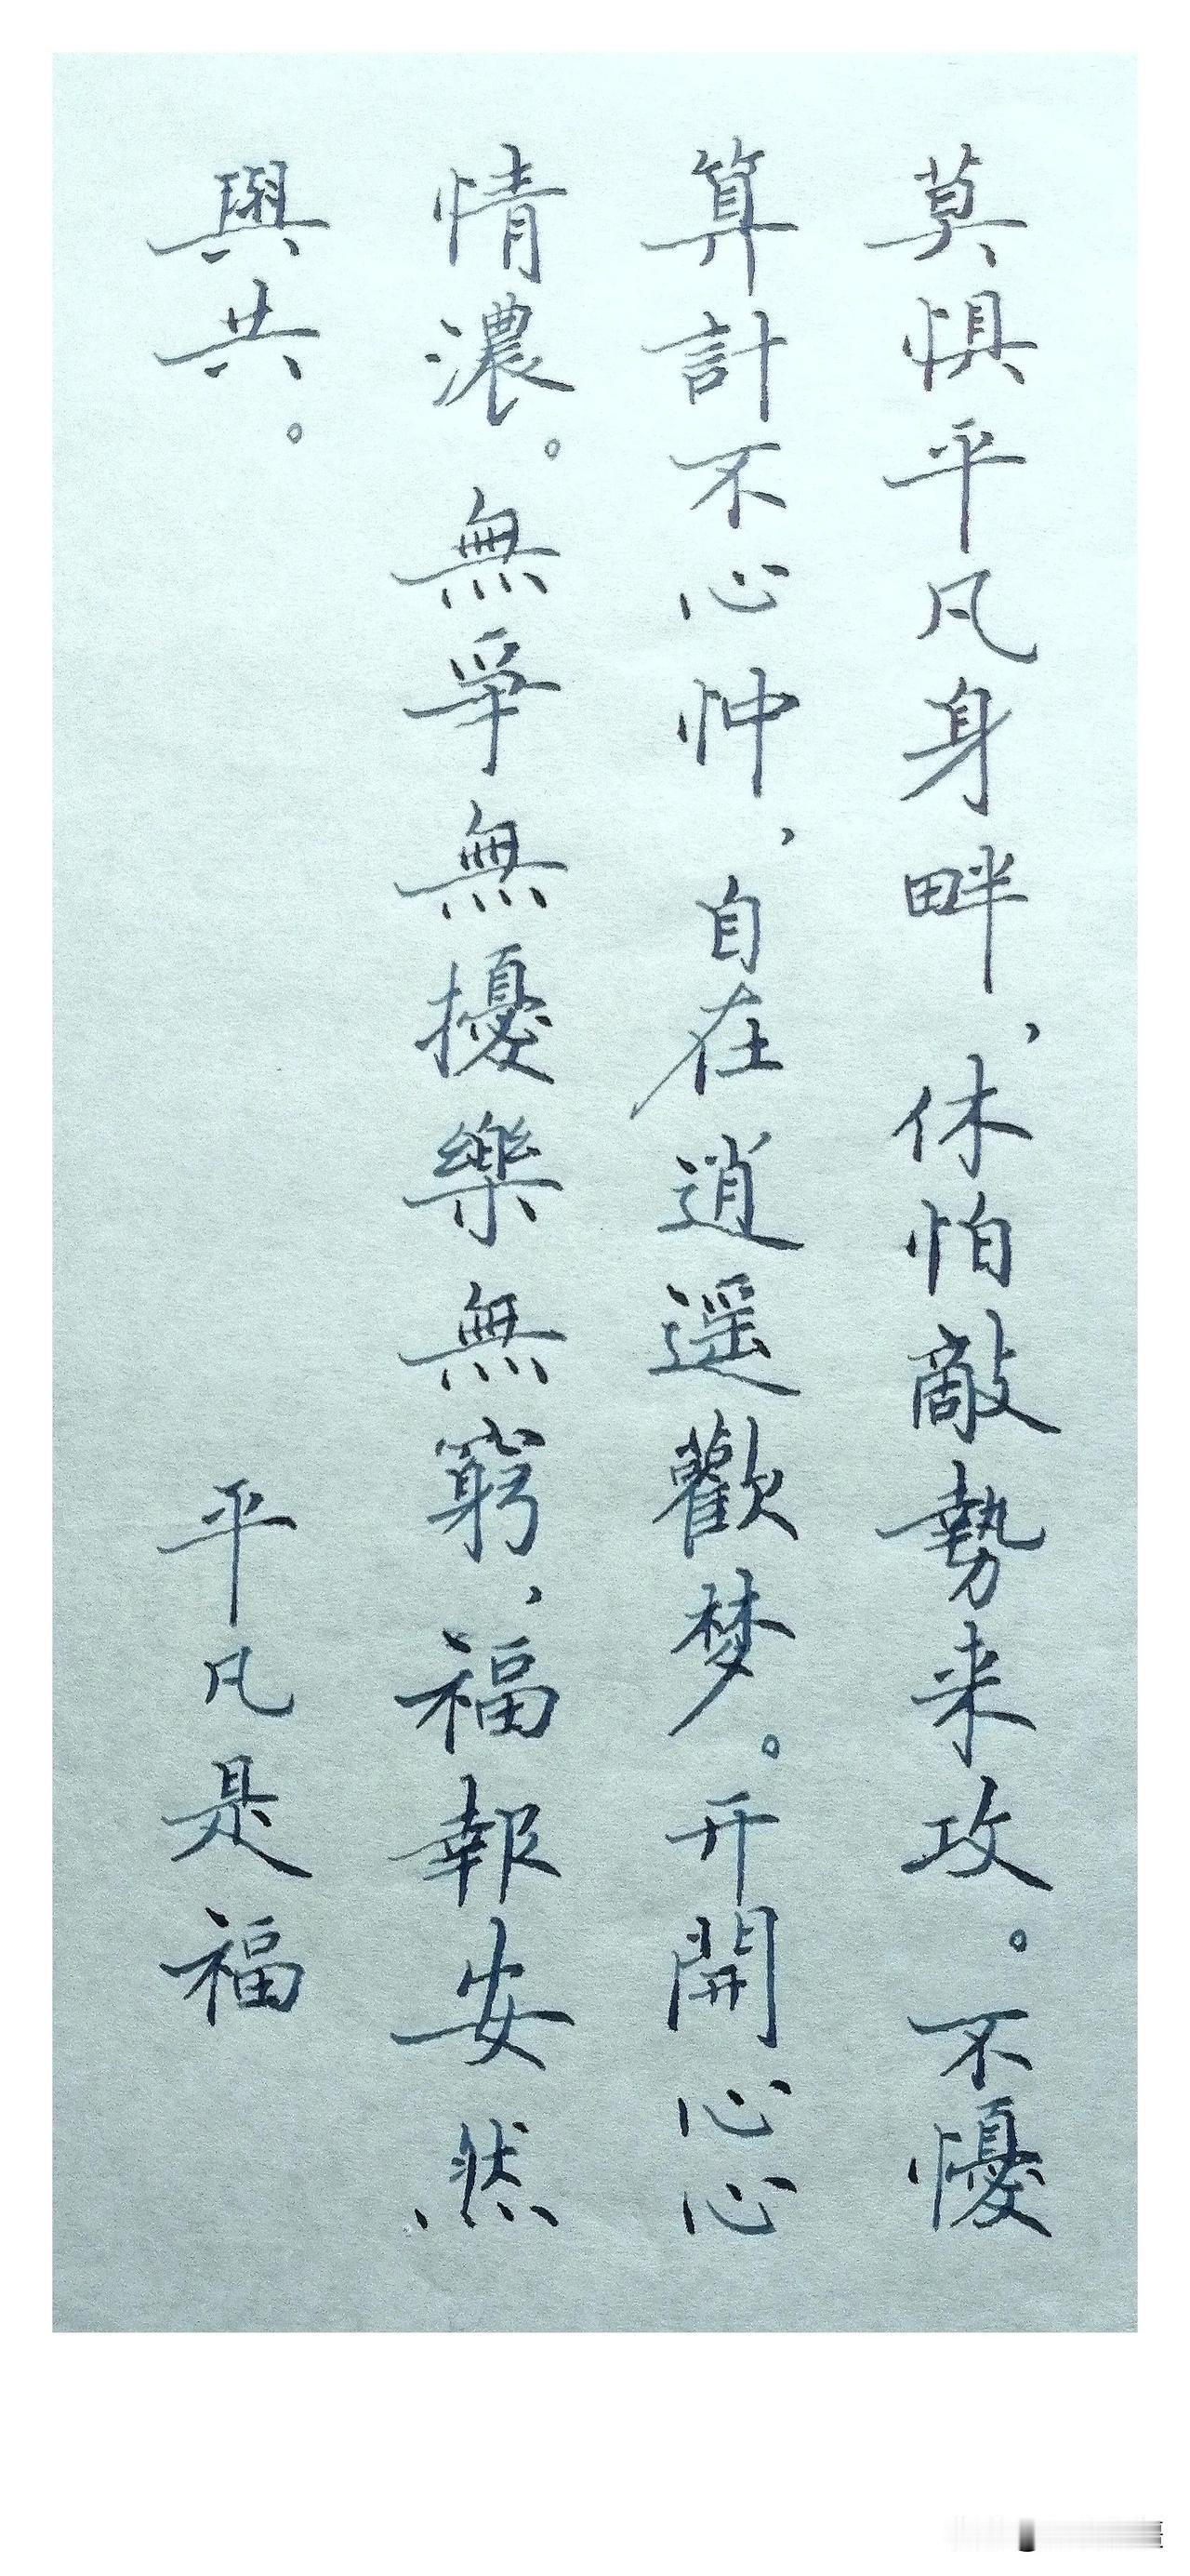 莫惧平凡身畔，休怕敵勢来攻。不懮
算計不心忡，自在逍遥歡梦。开開心心
情濃。無爭無擾樂無窮，福報安然
與共。
平凡是福